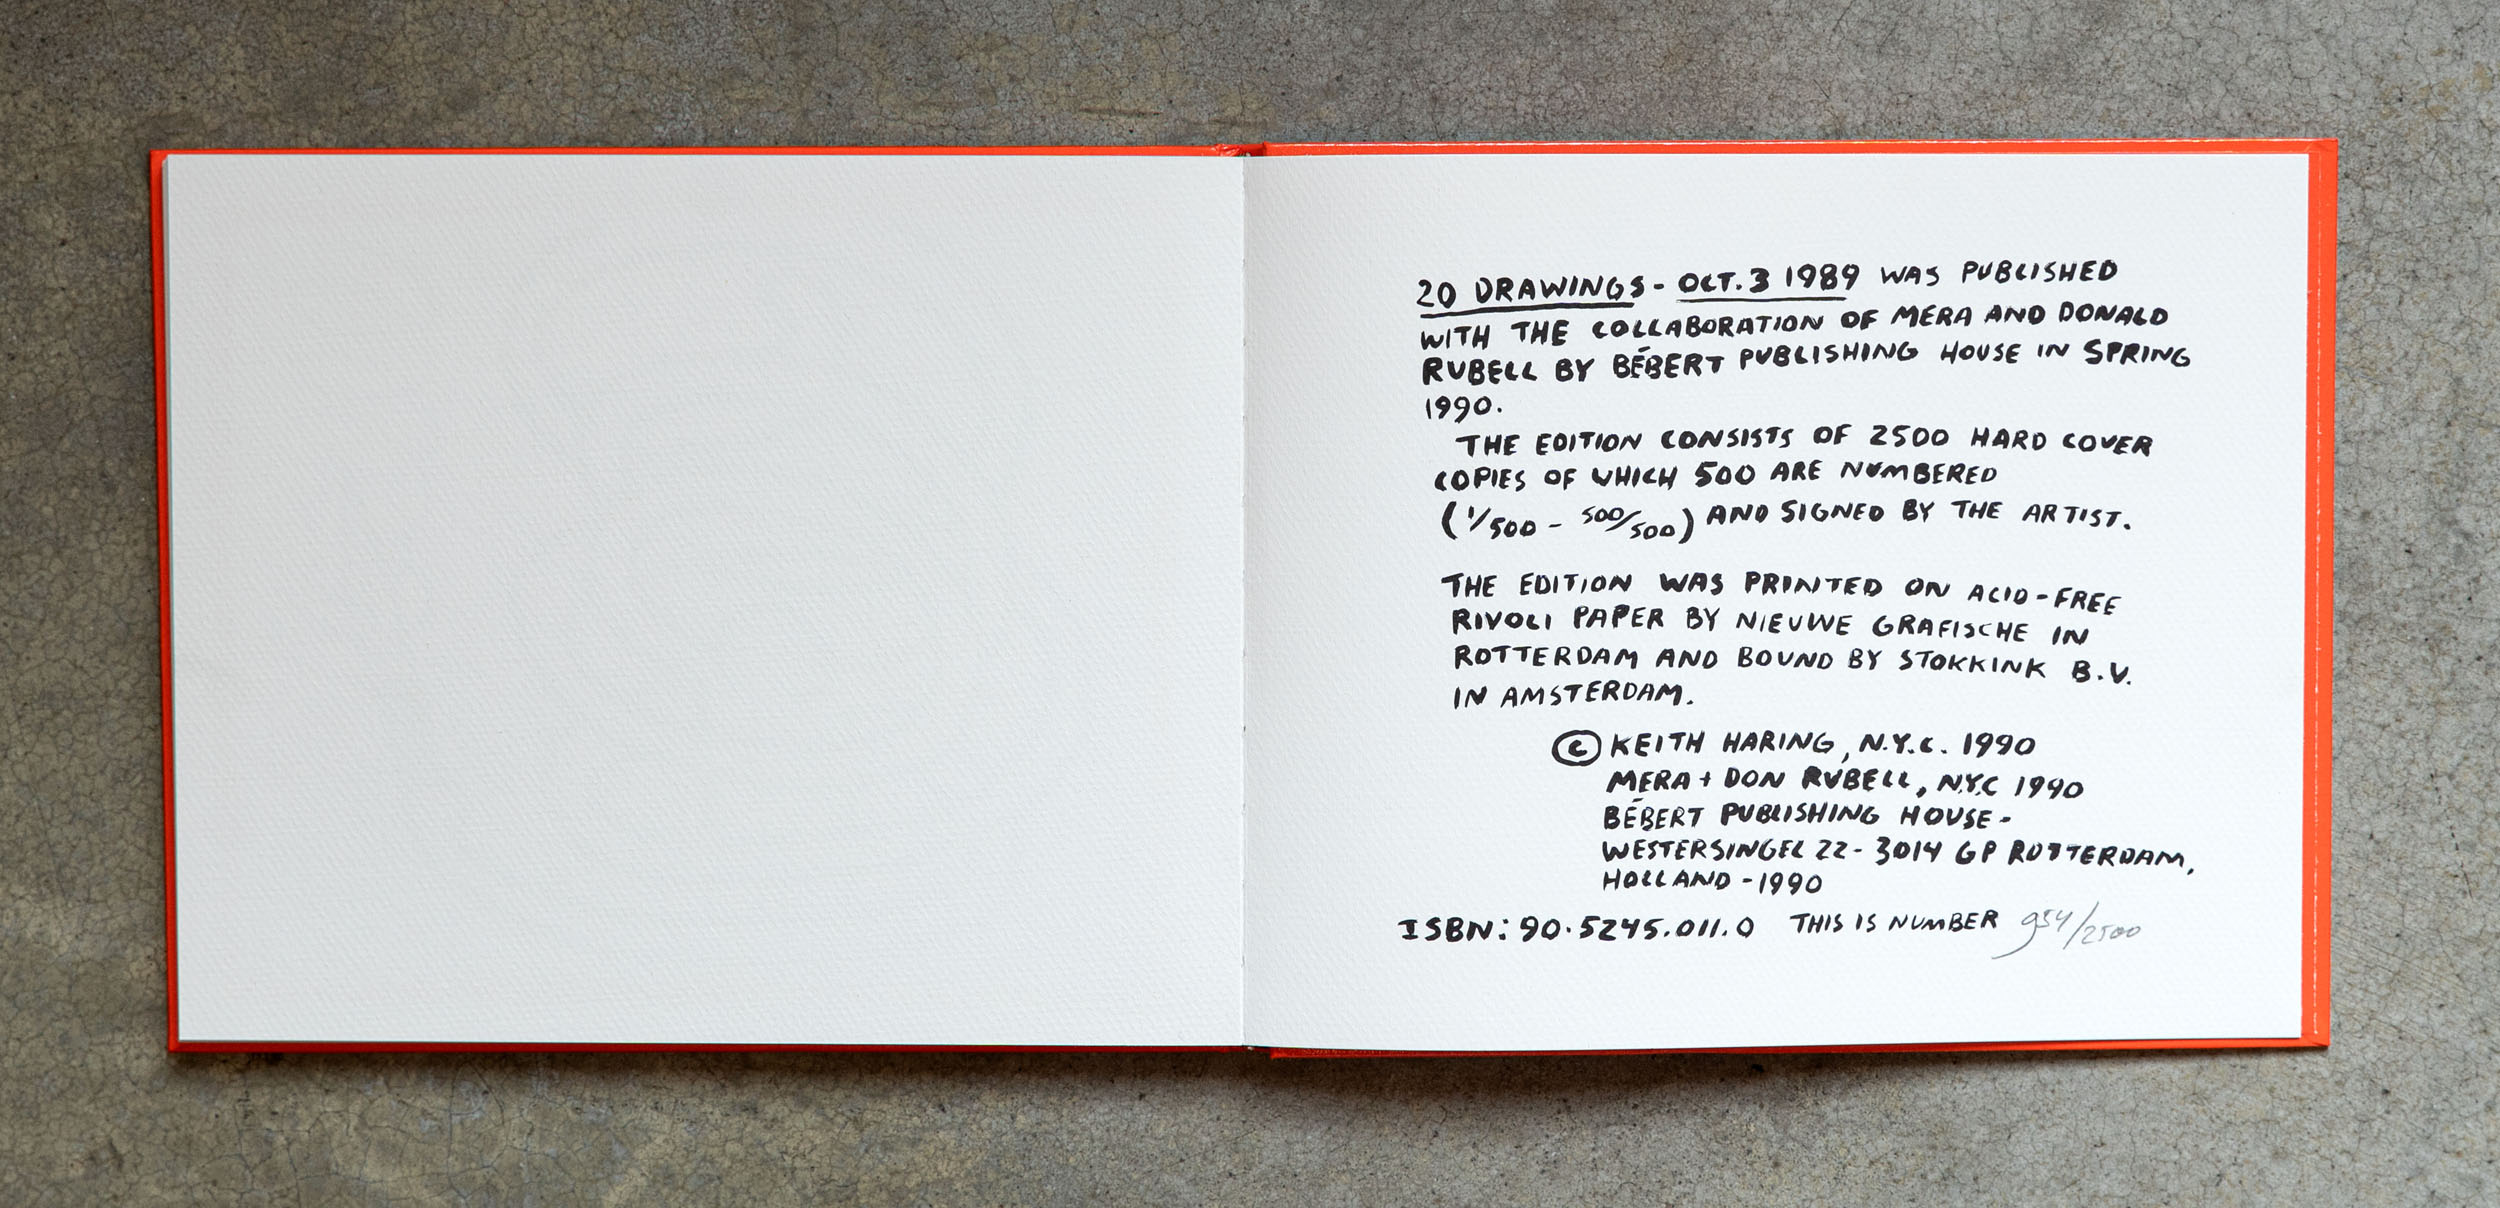 20 DRAWINGS - OCT. 3 1989 WAS PUBLISHED
WITH THE COLLABORATION OF MERA AND DONALD
RUBELL BY BÉBERT PUBLISHING HOUSE IN SPRING
1990.
THE EDITION CONSISTS OF 2500 HARD COVER
COPIES OF WHICH 500 ARE NUMBERED
(1/500 - 500/500) AND SIGNED BY THE ARTIST.
THE EDITION WAS PRINTED ON ACID-FREE
RIVOLI PAPER BY NIEUWE GRAFISCHE IN
ROTTERDAM AND BOUND BY STOKKINK B.V.
IN AMSTERDAM.
© KEITH HARING, N.Y.C. 1990
MERA + DON RUBELL, N.Y.C 1990
BÉBERT PUBLISHING HOUSE -
WESTERSINGEL 22 - 3014 GP ROTTERDAM,
HOLLAND - 1990
ISBN: 90.5245.011.0 THIS IS NUMBER 954/2500